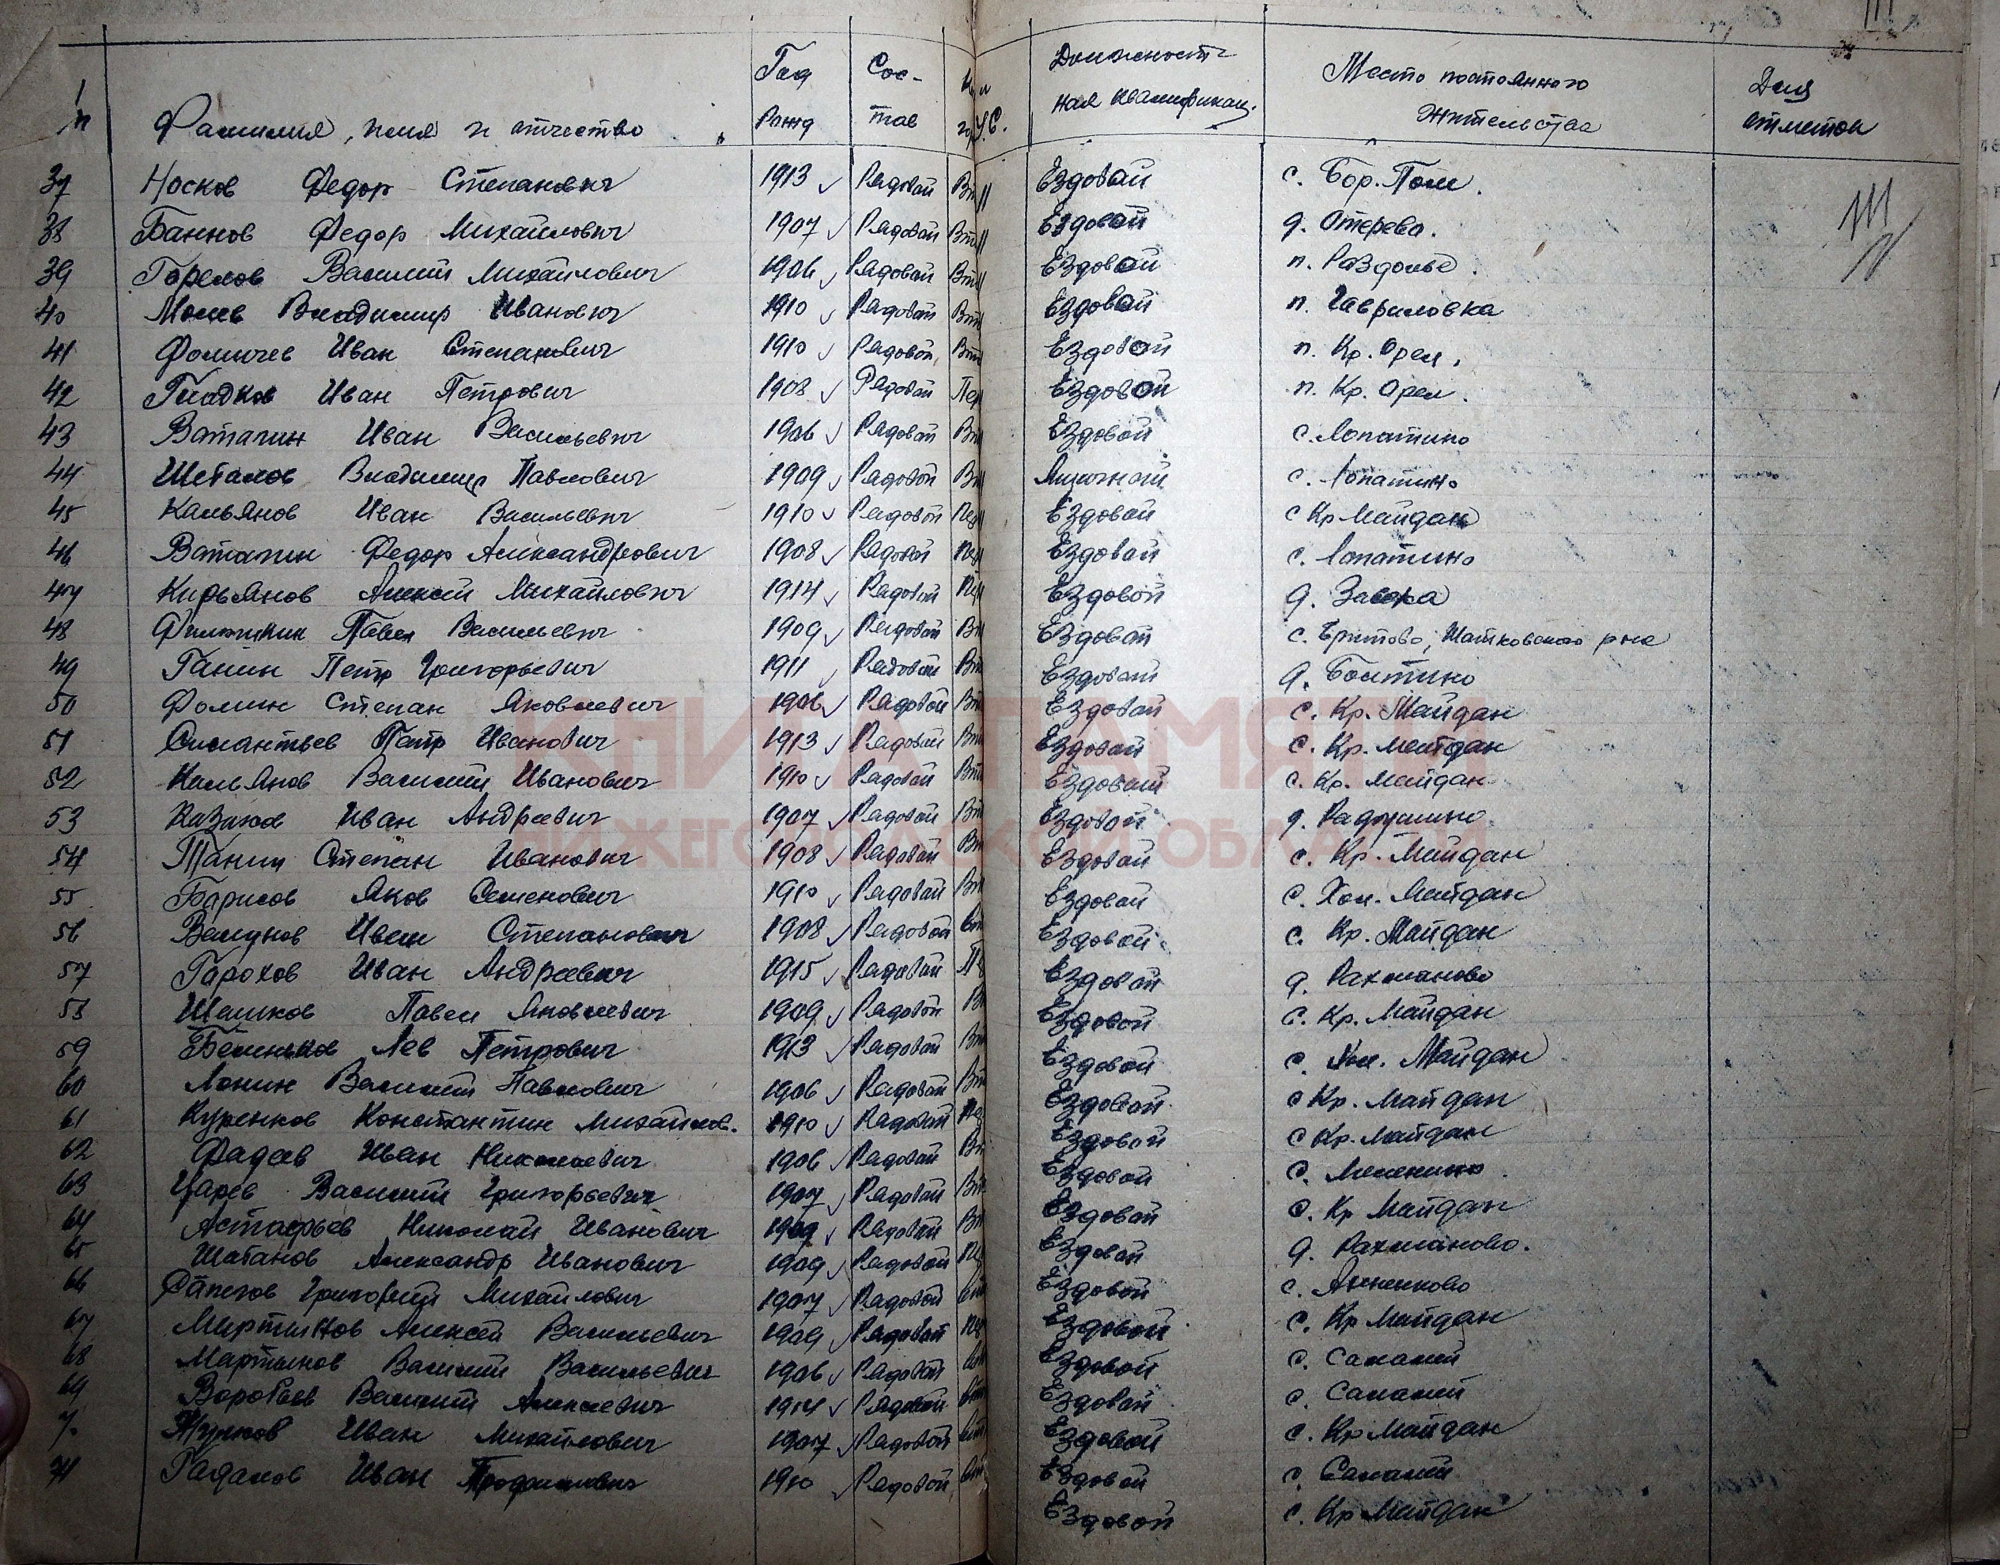 111
№ п/п Фамилия, имя и отчество Год рожд Сос-тав Должност-ная квалификац. Место постоянного жительства Для отметок
37 Носков Федор Степанович 1913 Рядовой Вт Ездовой с. Бор. Пом.
38 Баннов Федор Михайлович 1907 Рядовой Вт Ездовой д. Отерево.
39 Горелов Василий Михайлович 1906 Рядовой Вт Ездовой п. Раздолье.
40 Владимир Иванович 1910 Рядовой Вт Ездовой п. Гавриловка
41 Фомичев Иван Степанович 1910 Рядовой Вт Ездовой п. Кр. Орел.
42 Гладков Иван Петрович 1908 Рядовой Пер Ездовой п. Кр. Орел.
43 Ватагин Иван Васильевич 1906 Рядовой Вт Ездовой с. Лопатино
44 Шеталов Владимир Павлович 1909 Рядовой Вт с. Лопатино
45 Кальянов Иван Васильевич 1910 Рядовой Пер Ездовой с Кр Майдан
46 Ватагин Федор Александрович 1908 Рядовой Пер Ездовой с. Лопатино
47 Кирьянов Алексей Михайлович 1914 Рядовой Пер Ездовой д.
48 Павел Васильевич 1909 Рядовой Вт Ездовой с. Шатковского р на
49 Ганин Петр Григорьевич 1911 Рядовой Вт Ездовой д. Болтино
50 Фомин Степан Яковлевич 1906 Рядовой Вт Ездовой с. Кр. Майдан
51 Силантьев Петр Иванович 1913 Рядовой Вт Ездовой с. Кр. Майдан
52 Кальянов Василий Иванович 1910 Рядовой Вт Ездовой с. Кр. Майдан
53 Казаков Иван Андреевич 1907 Рядовой Вт Ездовой д.
54 Танин Степан Иванович 1908 Рядовой Вт Ездовой с. Кр. Майдан
55 Борисов Яков Семенович 1910 Рядовой Вт Ездовой с. Хол. Майдан
56 Иван Степанович 1908 Рядовой Вт Ездовой с. Кр. Майдан
57 Горохов Иван Андреевич 1915 Рядовой Пе Ездовой д. Рахманово
58 Шашков Павел Яковлевич 1909 Рядовой Вт Ездовой с. Кр. Майдан
59 Беленьков Лев Петрович 1913 Рядовой Вт Ездовой с. Хол. Майдан
60 Лонин Василий Павлович 1906 Рядовой Вт Ездовой с Кр. Майдан
61 Куренков Константин Михайлов. 1910 Рядовой Пер Ездовой с Кр. Майдан
62 Фадеев Иван Николаевич 1906 Рядовой Вт Ездовой с.
63 Царев Василий Григорьевич 1907 Рядовой Вт Ездовой с. Кр Майдан
64 Астафьев Николай Иванович 1909 Рядовой Вт Ездовой д. Рахманово.
65 Шатанов Александр Иванович 1909 Рядовой Пер Ездовой с. Анненково
66 Сапегов Григорий Михайлович 1907 Рядовой Вт Ездовой с. Кр Майдан
67 Мартынов Алексей Васильевич 1909 Рядовой Пер Ездовой с. Саканей
68 Мартынов Василий Васильевич 1906 Рядовой Вт Ездовой с. Саканей
69 Воробьев Василий Алексеевич 1914 Рядовой Вт Ездовой с. Кр Майдан
70 Жулков Иван Михайлович 1907 Рядовой Вт Ездовой с. Саканей
71 Иван Трофимович 1910 Рядовой Вт Ездовой с. Кр Майдан
111
КНИГА ПАМЯТИ
НИЖЕГОРОДСКОЙ ОБЛАСТИ